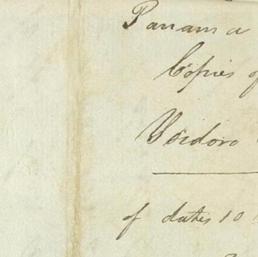 Panama
Copies of
Ysidoro
of dates 10